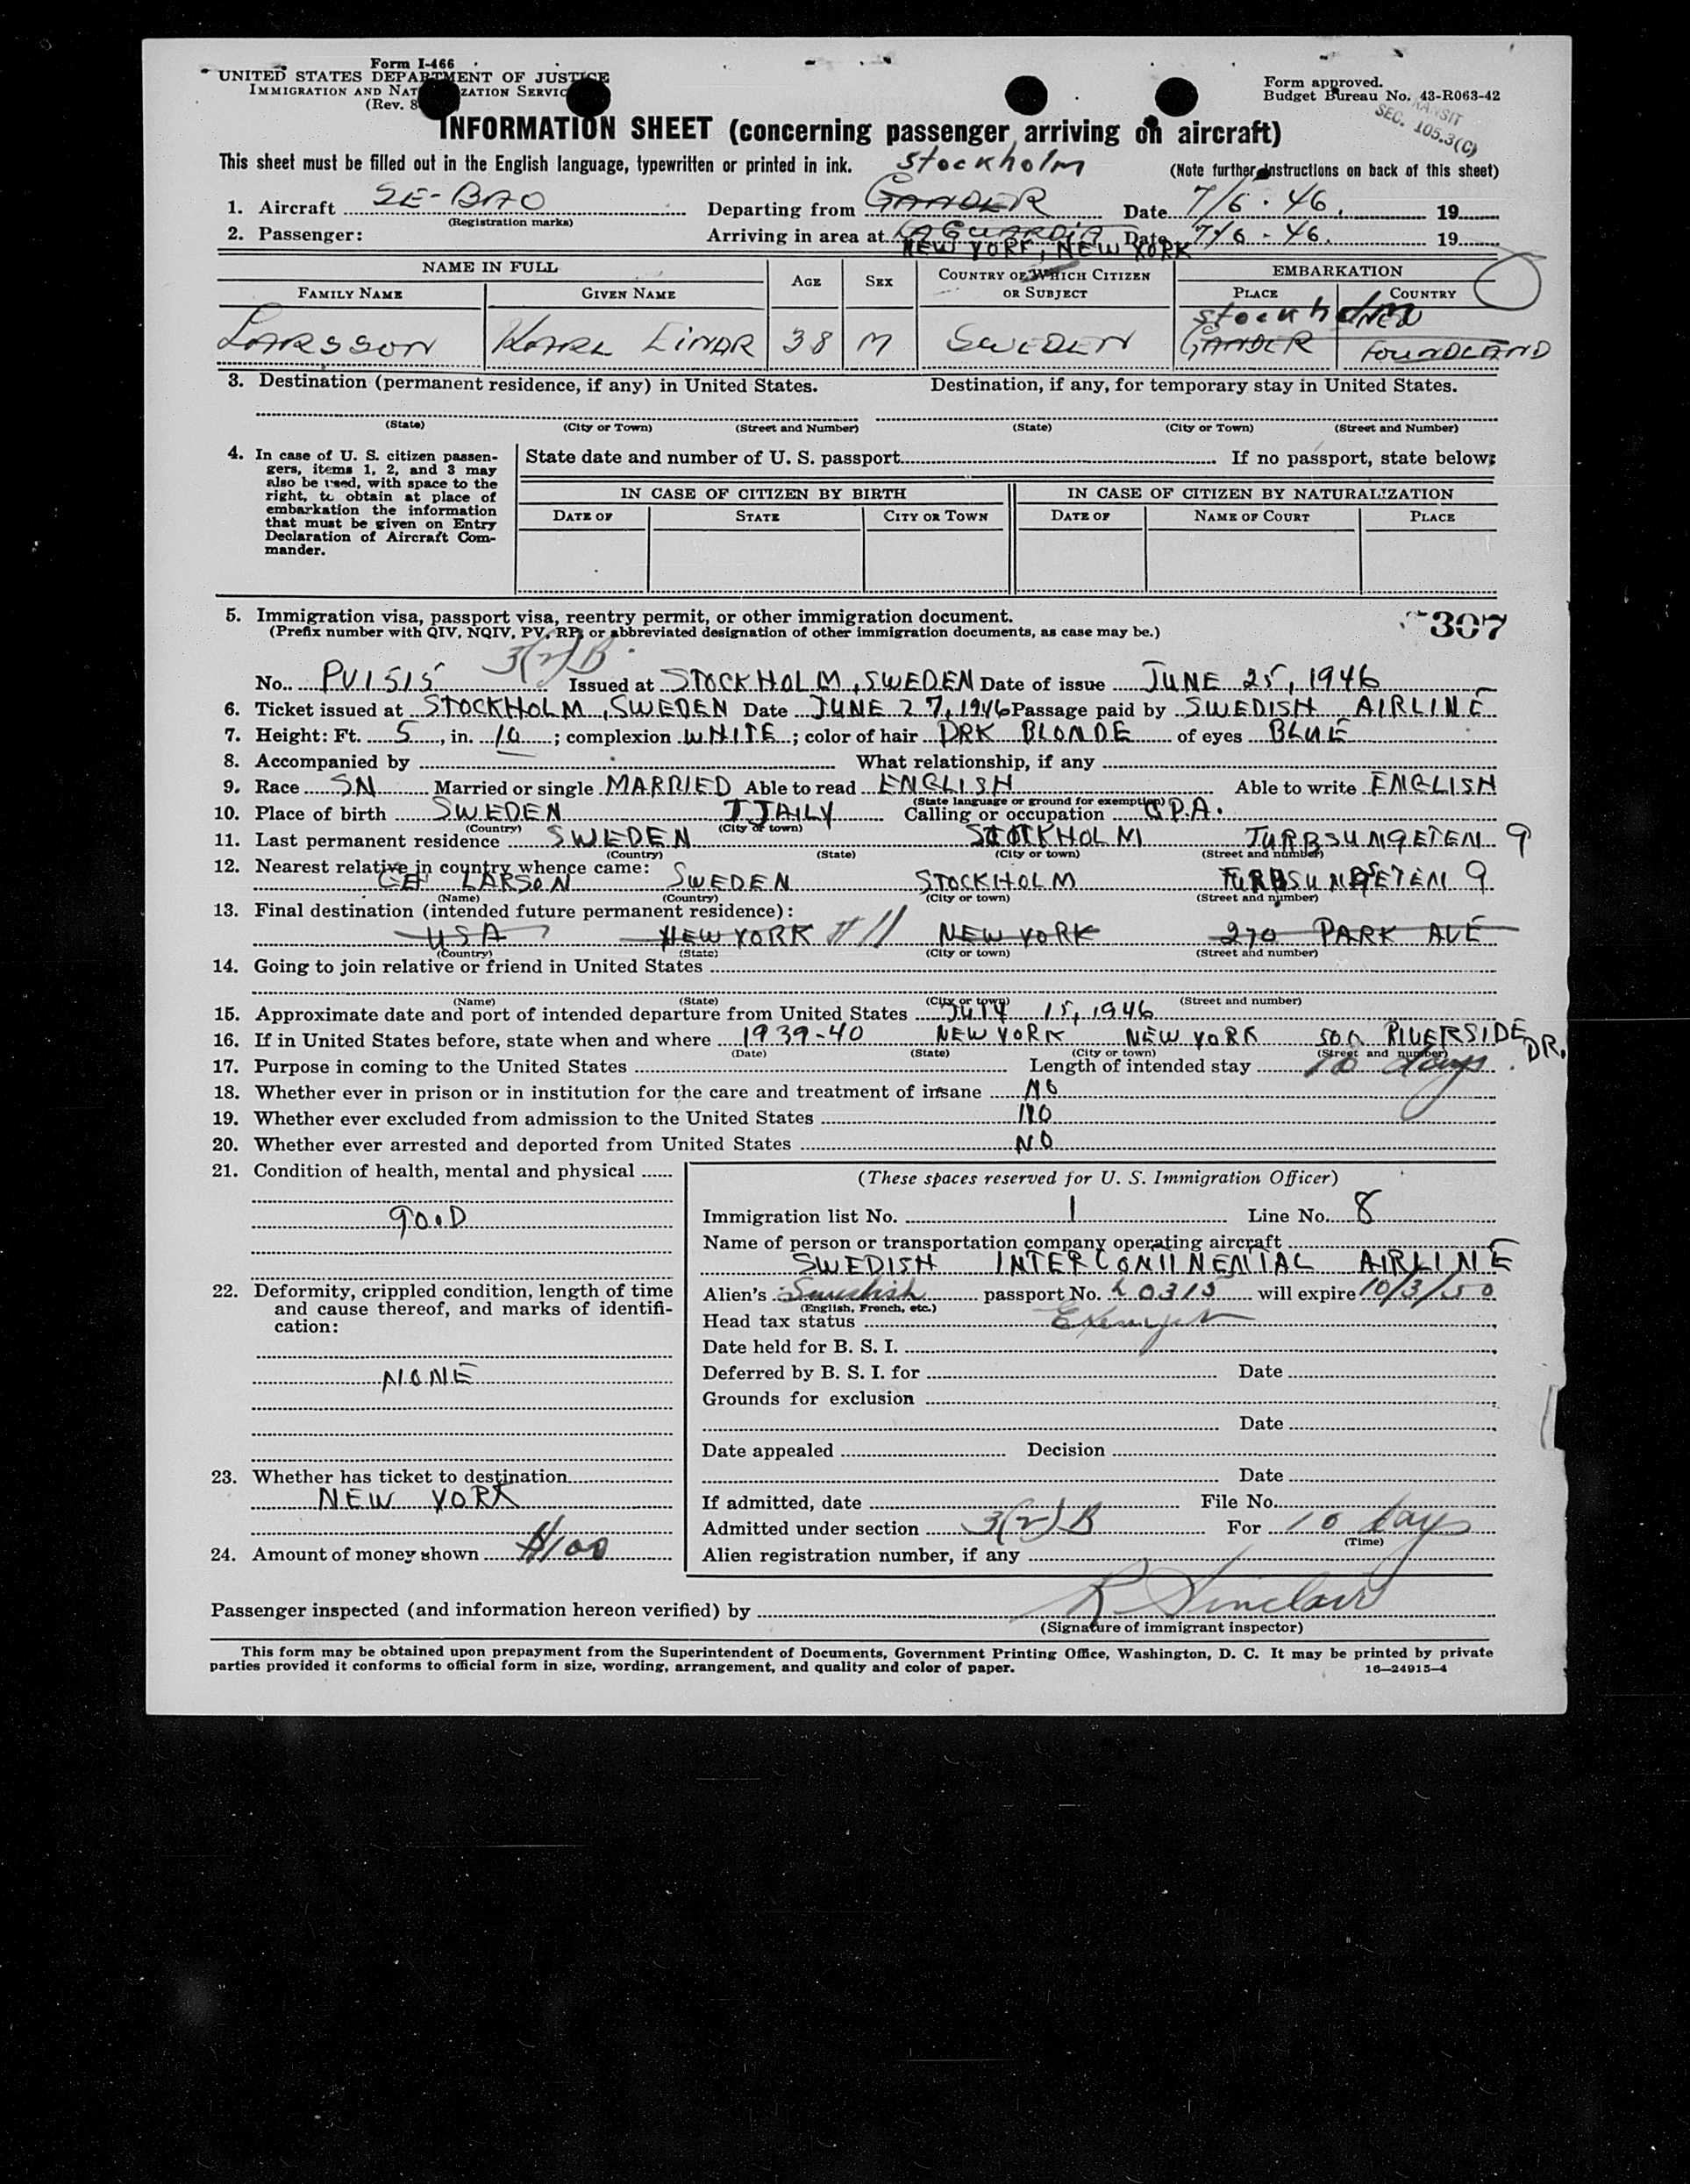 Form I-466
UNITED STATES DEPARTMENT OF JUSTICE
Form approved.
IMMIGRATION AND NAT ZATION SERVIC
Budget Bureau No. 43-R063-42
(Rev. 8
SEC. 105.3(C)
INFORMATION SHEET (concerning passenger arriving on aircraft)
This sheet must be filled out in the English language, typewritten or printed in ink. Stockholm (Note further instructions on back of this sheet)
1. Aircraft SE-BAO Departing from GANDER Date 7/6.46. 19
(Registration marks)
2. Passenger: Arriving in area at LA GUARDIA Date 7/6-46. 19
NEW YORK, NEW YORK
NAME IN FULL AGE SEX COUNTRY OF WHICH CITIZEN OR SUBJECT EMBARKATION
FAMILY NAME GIVEN NAME PLACE COUNTRY
Stockholm NEW
LARSSON KARL EINAR 38 M SWEDEN GANDER FOUNDLAND
3. Destination (permanent residence, if any) in United States. Destination, if any, for temporary stay in United States.
(State) (City or Town) (Street and Number) (State) (City or Town) (Street and Number)
4. In case of U. S. citizen passen-
gers, items 1, 2, and 3 may
also be used, with space to the
right, to obtain at place of
embarkation the information
that must be given on Entry
Declaration of Aircraft Com-
mander.
State date and number of U. S. passport If no passport, state below:
IN CASE OF CITIZEN BY BIRTH IN CASE OF CITIZEN BY NATURALIZATION
DATE OF STATE CITY OR TOWN DATE OF NAME OF COURT PLACE
5. Immigration visa, passport visa, reentry permit, or other immigration document.
307
(Prefix number with QIV, NQIV, PV, RP, or abbreviated designation of other immigration documents, as case may be.)
3(2)B
No. PV1515 Issued at STOCKHOLM, SWEDEN Date of issue JUNE 25, 1946
6. Ticket issued at STOCKHOLM, SWEDEN Date JUNE 27, 1946 Passage paid by SWEDISH AIRLINE
7. Height: Ft. 5, in. 10; complexion WHITE; color of hair DRK BLONDE of eyes BLUE
8. Accompanied by What relationship, if any
9. Race SN Married or single MARRIED Able to read ENGLISH Able to write ENGLISH
(State language or ground for exemption)
10. Place of birth SWEDEN Calling or occupation
(Country) (City or town)
11. Last permanent residence SWEDEN STOCKHOLM 9
(Country) (State) (City or town) (Street and number)
12. Nearest relative in country whence came:
LARSON SWEDEN STOCKHOLM 9
(Name) (Country) (City or town) (Street and number)
13. Final destination (intended future permanent residence):
USA NEW YORK NEW YORK 270 PARK AVE
(Country) (State) (City or town) (Street and number)
14. Going to join relative or friend in United States
(Name) (State) (City or town) (Street and number)
15. Approximate date and port of intended departure from United States JULY 15, 1946
16. If in United States before, state when and where 1939-40 NEW YORK NEW YORK RIVERSIDE DR.
(Date) (State) (City or town) (Street and number)
17. Purpose in coming to the United States Length of intended stay 10 days
18. Whether ever in prison or in institution for the care and treatment of insane NO
19. Whether ever excluded from admission to the United States NO
20. Whether ever arrested and deported from United States NO
21. Condition of health, mental and physical
GOOD
22. Deformity, crippled condition, length of time
and cause thereof, and marks of identifi-
cation:
NONE
23. Whether has ticket to destination
NEW YORK
24. Amount of money shown $100
(These spaces reserved for U. S. Immigration Officer)
Immigration list No. 1 Line No. 8
Name of person or transportation company operating aircraft
SWEDISH INTERCONTINENTAL AIRLINE
Alien's Swedish passport No. will expire 10/3/50
(English, French, etc.)
Head tax status Exempt
Date held for B. S. I.
Deferred by B. S. I. for Date
Grounds for exclusion
Date
Date appealed Decision
Date
If admitted, date File No.
Admitted under section 3(2)B For 10 days
(Time)
Alien registration number, if any
Passenger inspected (and information hereon verified) by R Sinclair
(Signature of immigrant inspector)
This form may be obtained upon prepayment from the Superintendent of Documents, Government Printing Office, Washington, D. C. It may be printed by private
parties provided it conforms to official form in size, wording, arrangement, and quality and color of paper. 16—24915-4